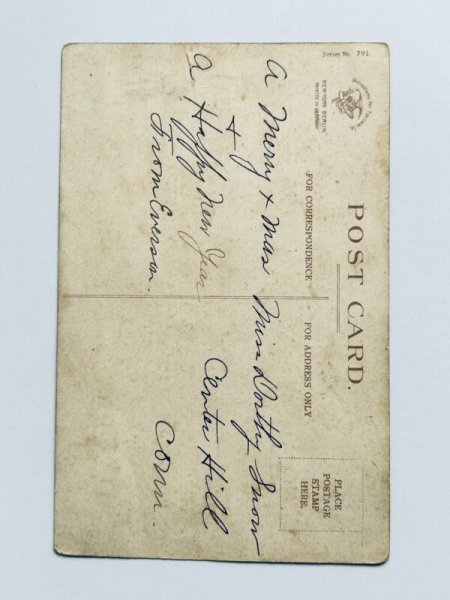 Series No. 793.
International Art Publishing Co.
NEW-YORK BERLIN
PRINTED IN GERMANY
POST CARD.
FOR CORRESPONDENCE
FOR ADDRESS ONLY
PLACE
POSTAGE
STAMP
HERE.
A Merry Xmas
+
A Happy New Year
From Everson.
Miss Dorthy Snow
Center Hill
Conn.